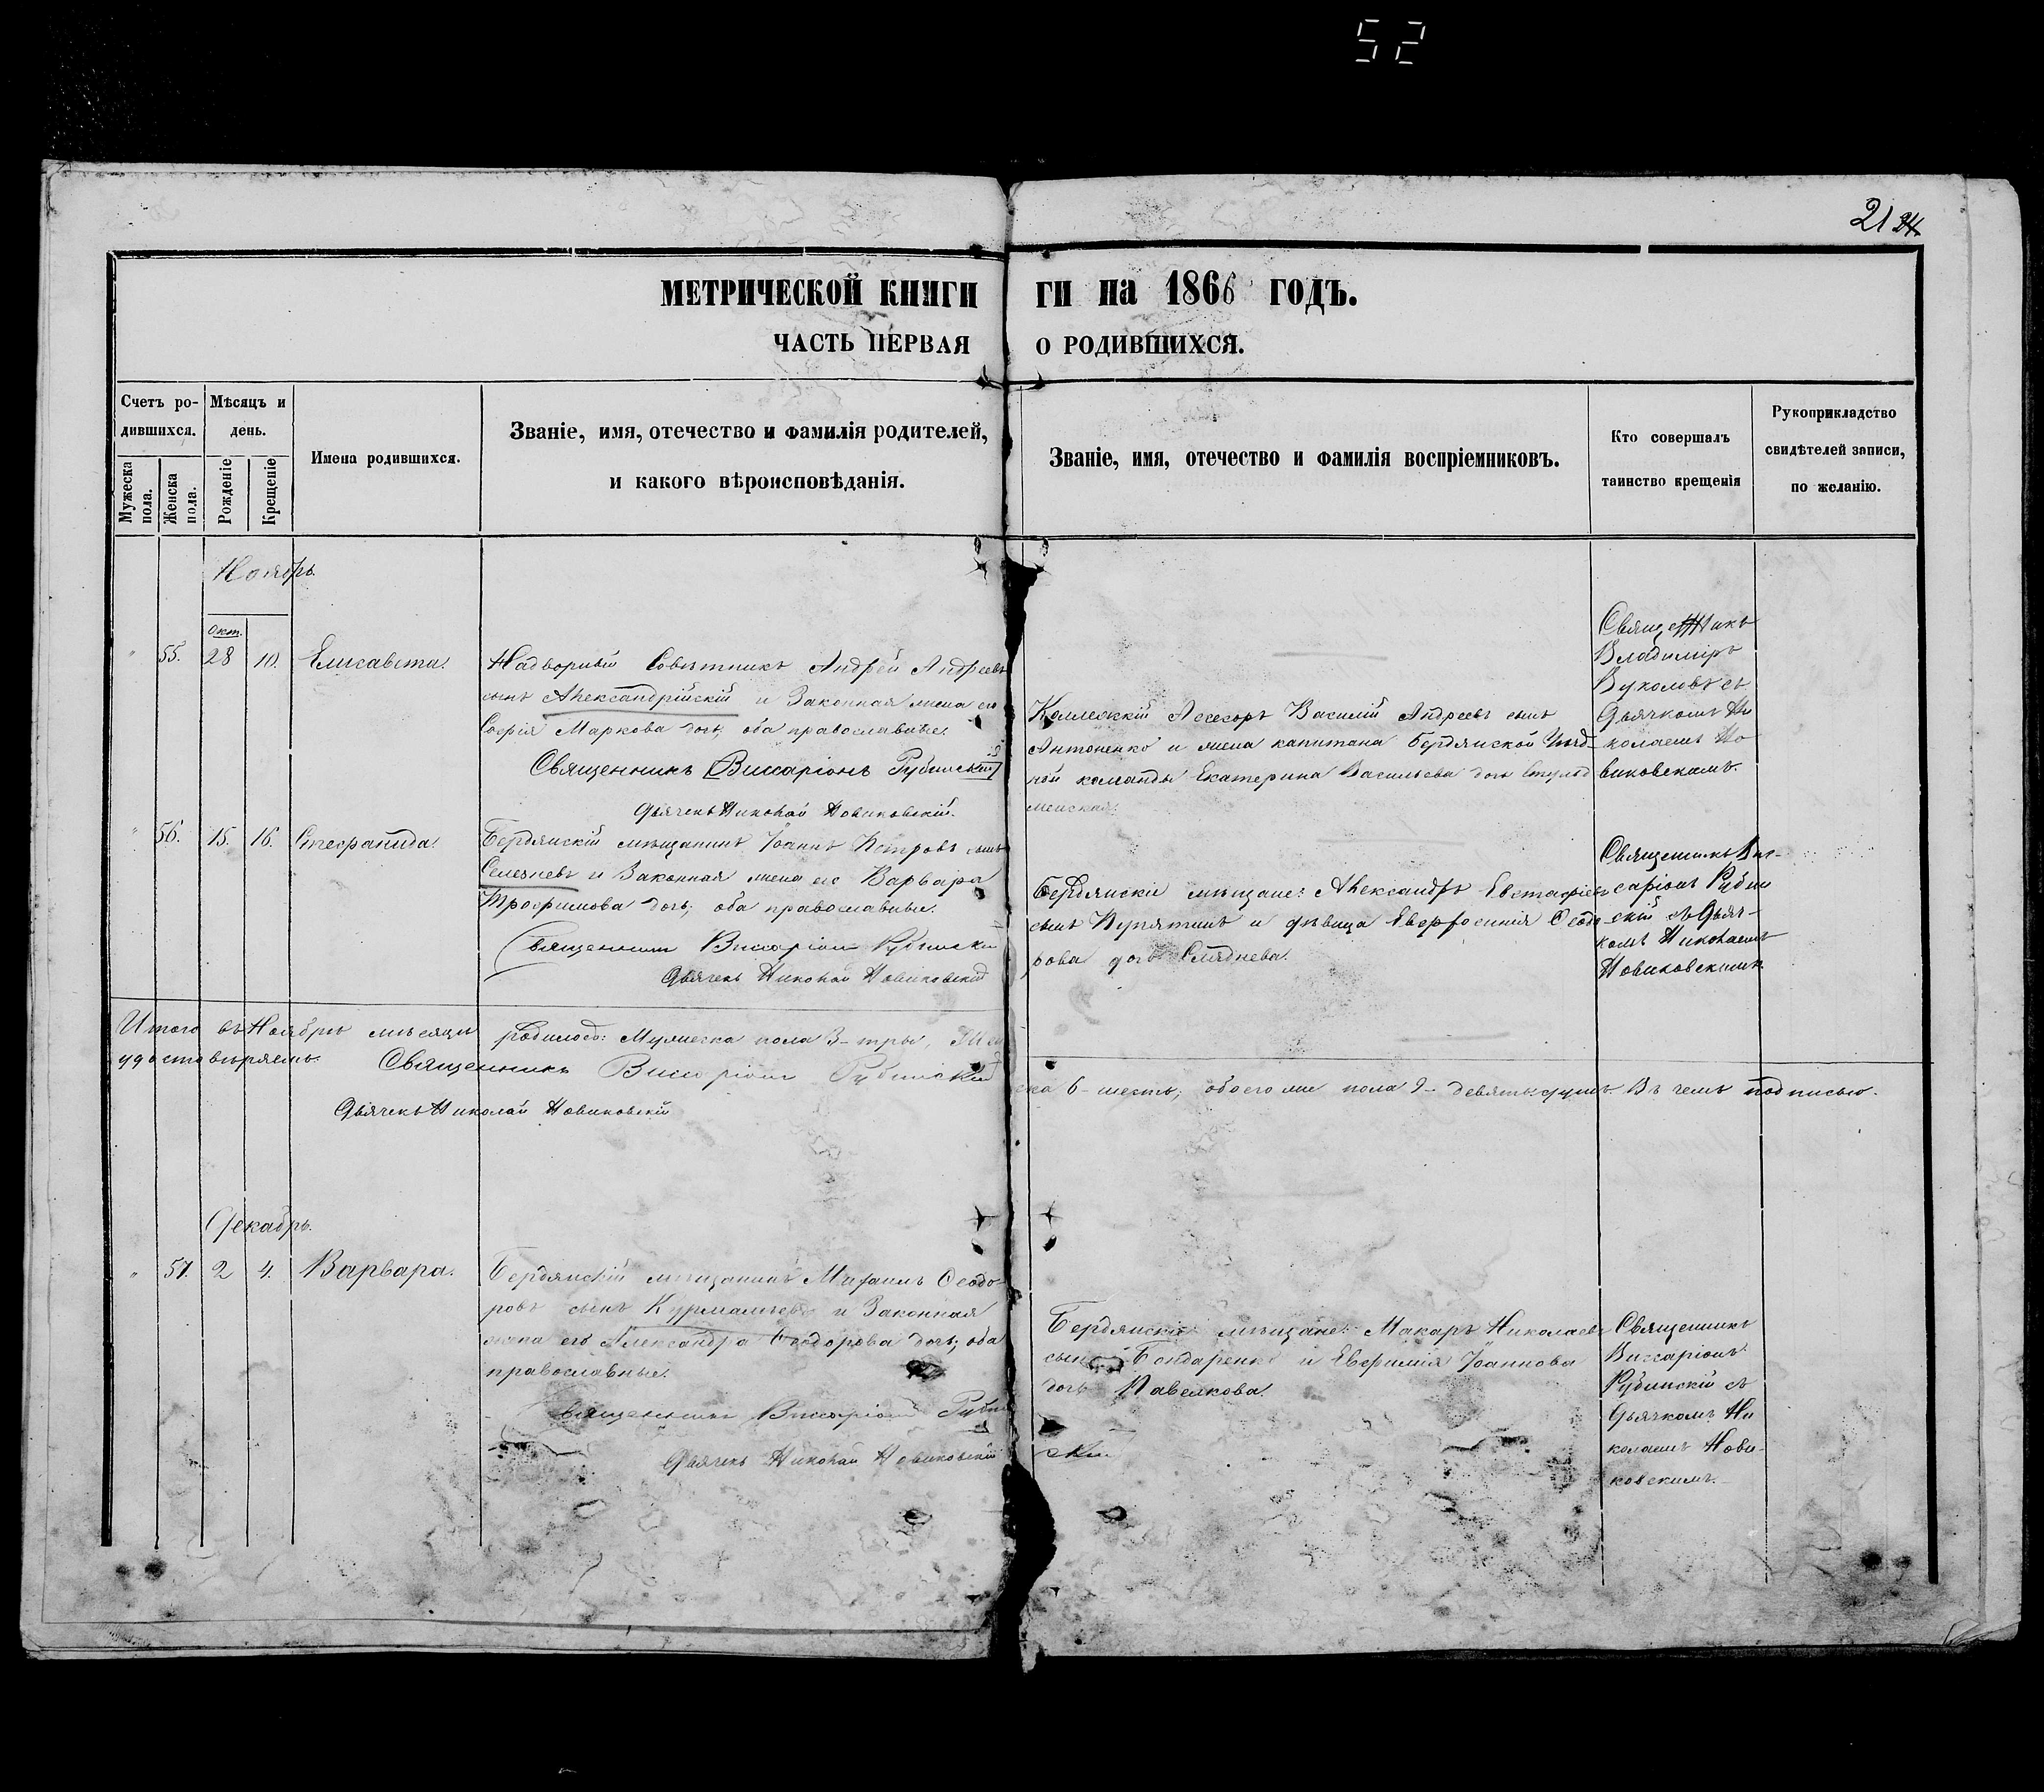 52
21 24
МЕТРИЧЕСКОЙ КНИГИ
ГИ на 1866 ГОДЪ.
ЧАСТЬ ПЕРВАЯ
О РОДИВШИХСЯ.
Счетъ ро-
дившихся.
Мужеска
пола.
Женска
пола.
Мѣсяцъ и
день.
Рожденіе
Крещеніе
Имена родившихся.
Званіе, имя, отечество и фамилія родителей,
и какого вѣроисповѣданія.
Званіе, имя, отечество и фамилія воспріемниковъ.
Кто совершалъ
таинство крещенія
Рукоприкладство
свидѣтелей записи,
по желанію.
Ноябрь.
Окт.
" 55. 28 10. Елисавета.
Надворный Совѣтникъ Андрей Андреевъ
сынъ Александрійскій и Законная жена его
Софія Маркова дочь, оба православные.
Священникъ Виссаріонъ Рубинскій
Дьячекъ Николай Новиковскій.
Коллежскій Асесоръ Василій Андреевъ сынъ
Антоненко и жена капитана Бердянской Уѣзд-
ной команды Екатерина Васильева дочь
Священникъ
Владиміръ
Вуколовъ съ
Дьячкомъ Ни
колаемъ Но
виковскимъ.
" 56. 15. 16. Стефанида.
Бердянскій мѣщанинъ Іоаннъ Петровъ сынъ
Селезневъ и Законная жена его Варвара
Трофимова дочь, оба православные.
Священникъ Виссаріонъ Рубински
Дьячекъ Николай Новиковскій
Бердянскіе мѣщане: Александръ Евстафіевъ
сынъ Пупятинъ и дѣвица Евфросинія Ѳеодо
рова дочь
Священникъ Вис-
саріонъ Рубин
скій съ Дьяч-
комъ Николаемъ
Новиковскимъ.
Итого въ Ноябрѣ мѣсяцѣ родилось: Мужеска пола 3-три, Жен
ска 6-шесть, обоего же пола 9-девять душъ. Въ чемъ подписью.
удостовѣряемъ. Священникъ Виссаріонъ Рубинскій
Дьячекъ Николай Новиковскій
Декабрь.
" 57. 2 4. Варвара.
Бердянскій мѣщанинъ Михаилъ Ѳеодо-
ровъ сынъ Курмалчевъ и Законная
жена его Александра Ѳеодорова дочь, оба
православные.
Священникъ Виссаріонъ Рубин
скій
Дьячекъ Николай Новиковскій
Бердянскіе мѣщане: Макаръ Николаевъ
сынъ Бондаренко и Евфимія Іоаннова
дочь Павелкова.
Священникъ
Виссаріонъ
Рубинскій съ
Дьячкомъ Ни
колаемъ Нови-
ковскимъ.